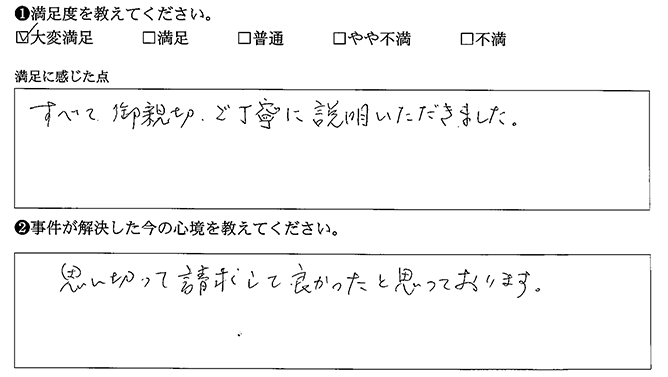 ❶満足度を教えてください。
☑大変満足 □満足 □普通 □やや不満 □不満
満足に感じた点
すべて、御親切、ご丁寧に説明いただきました。
❷事件が解決した今の心境を教えてください。
思い切って請求して良かったと思っております。